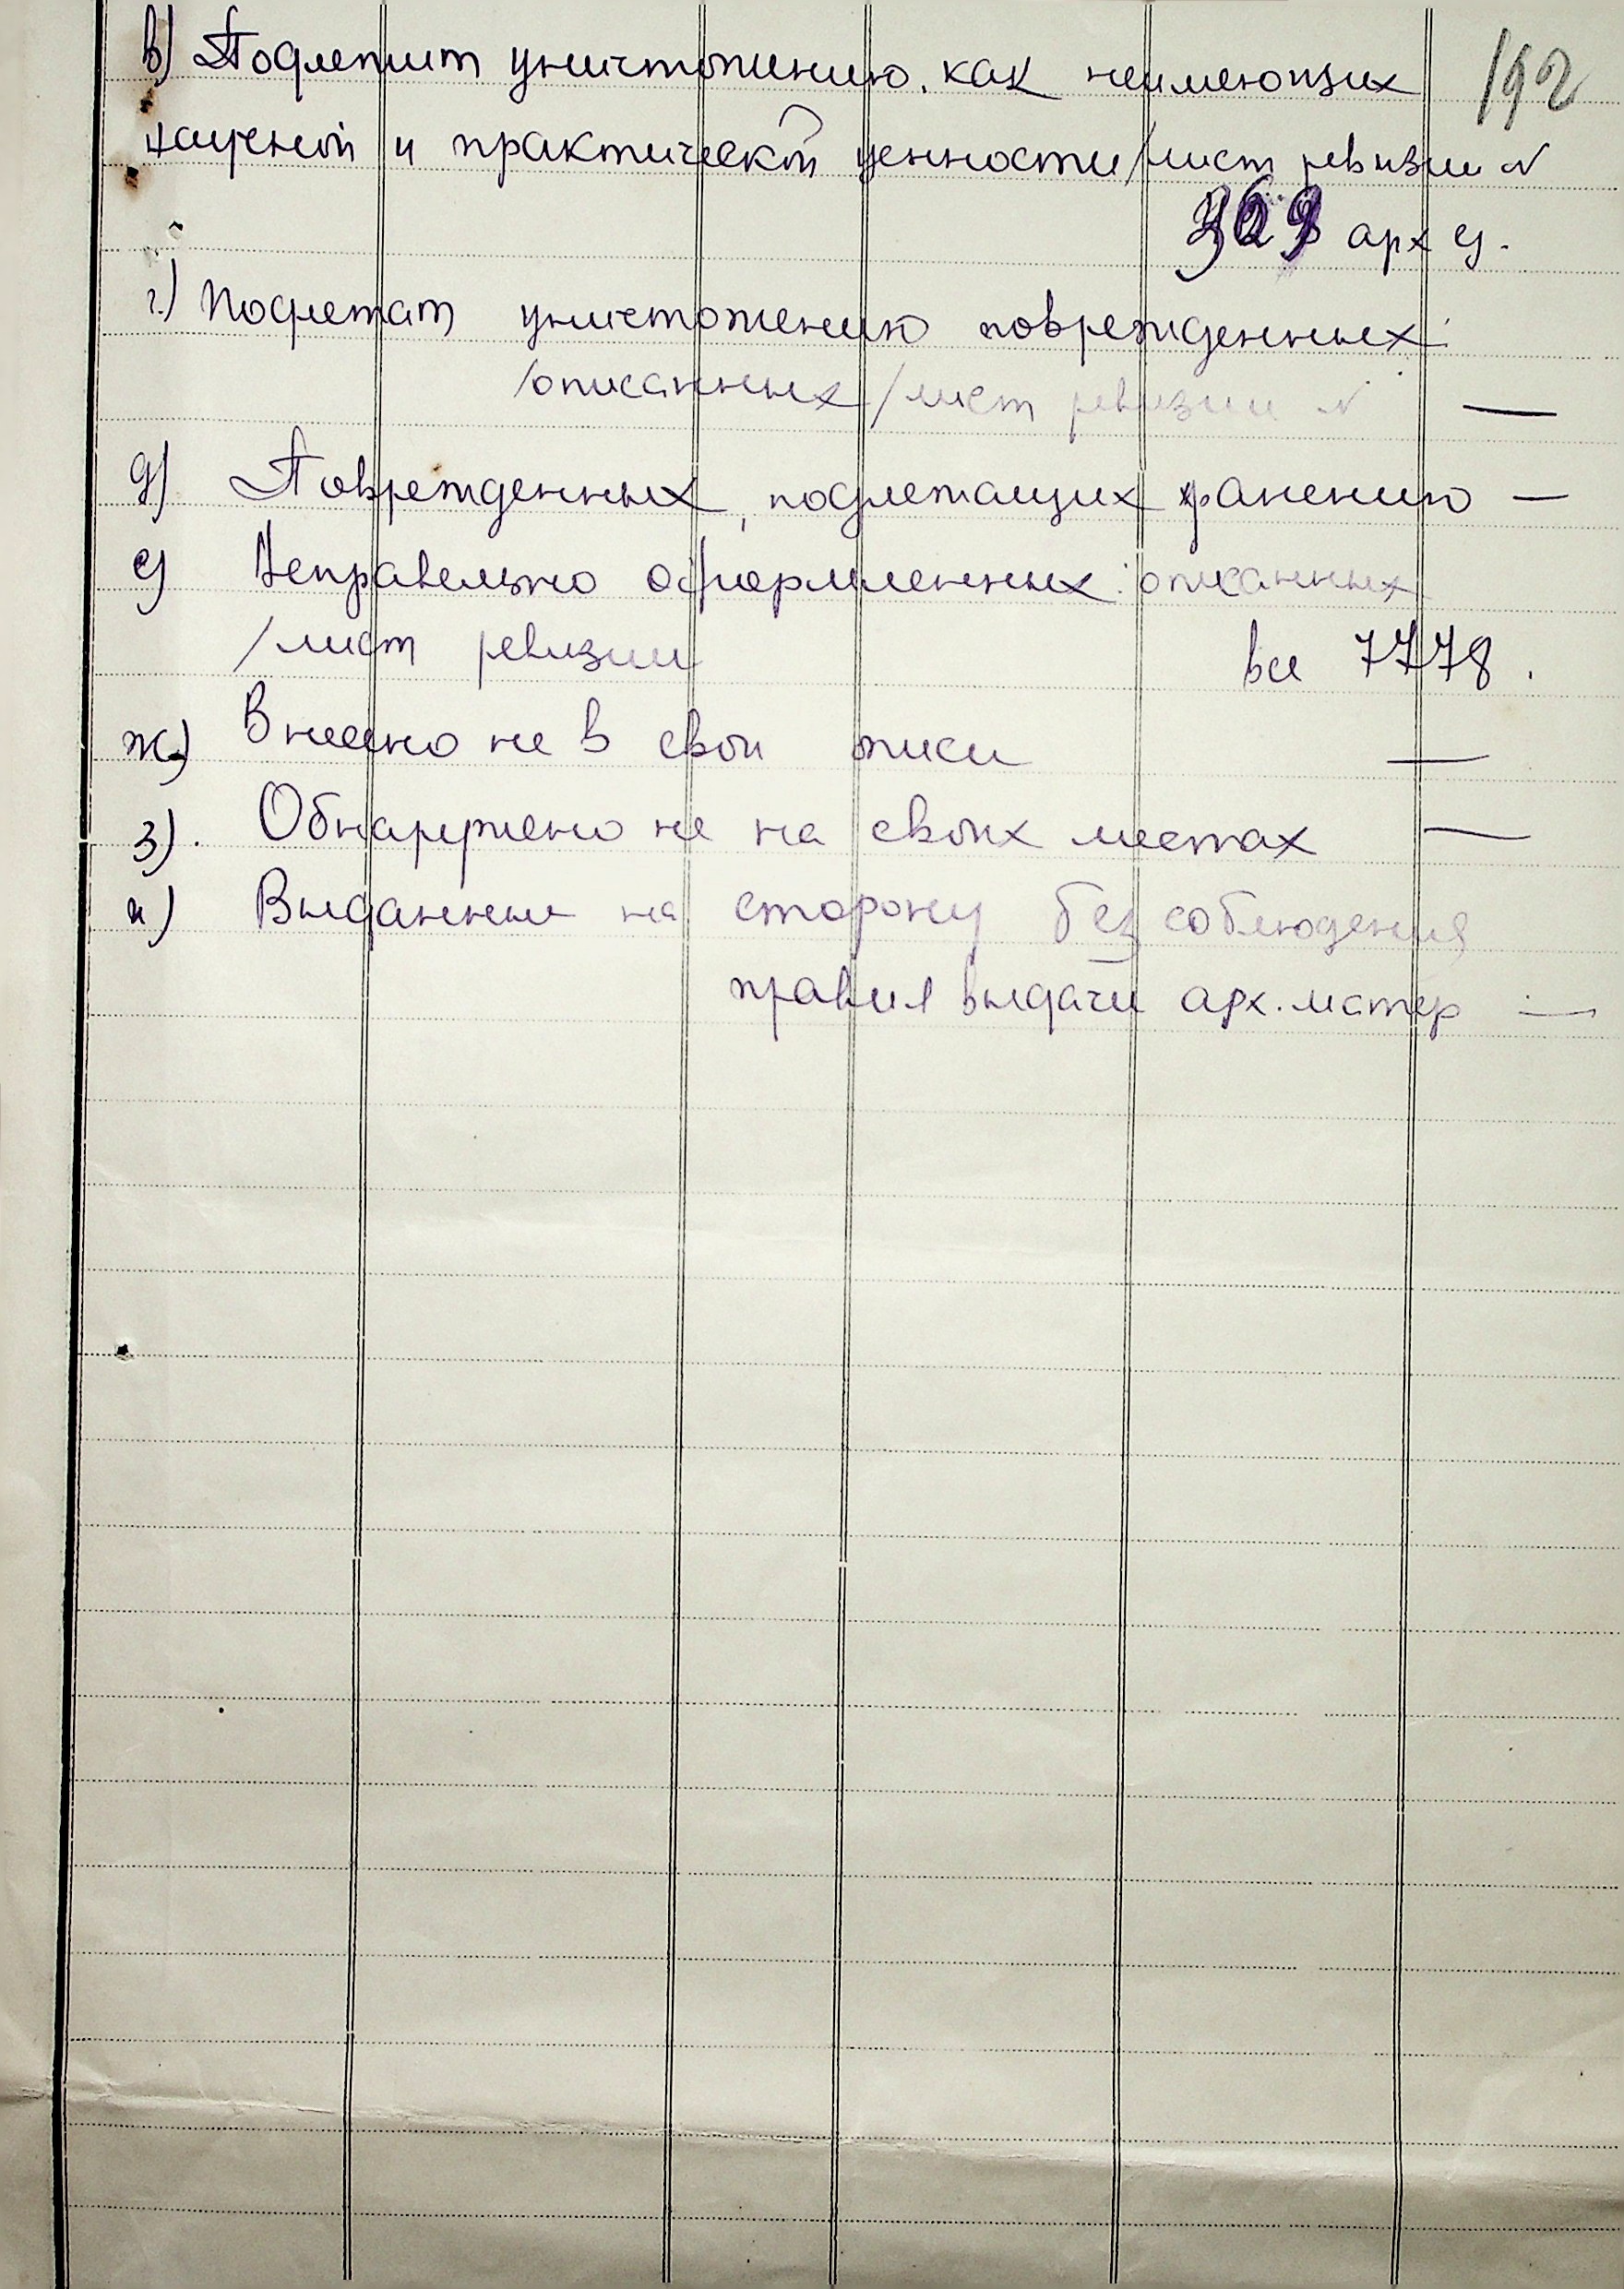 192
в) Подлежит уничтожению, как неимеющих
научной и практической ценности /лист ревизии N
369 арх ед.
г.) Подлежат уничтожению поврежденных:
/описанных /лист ревизии N —
д) Поврежденных, подлежащих хранению —
е) Неправельно оформленных: описанных
/лист ревизии все 7778.
ж) Внесено не в свои описи —
з). Обнаружено не на своих местах —
и) Выданные на сторону без соблюдения
правил выдачи арх. матер —